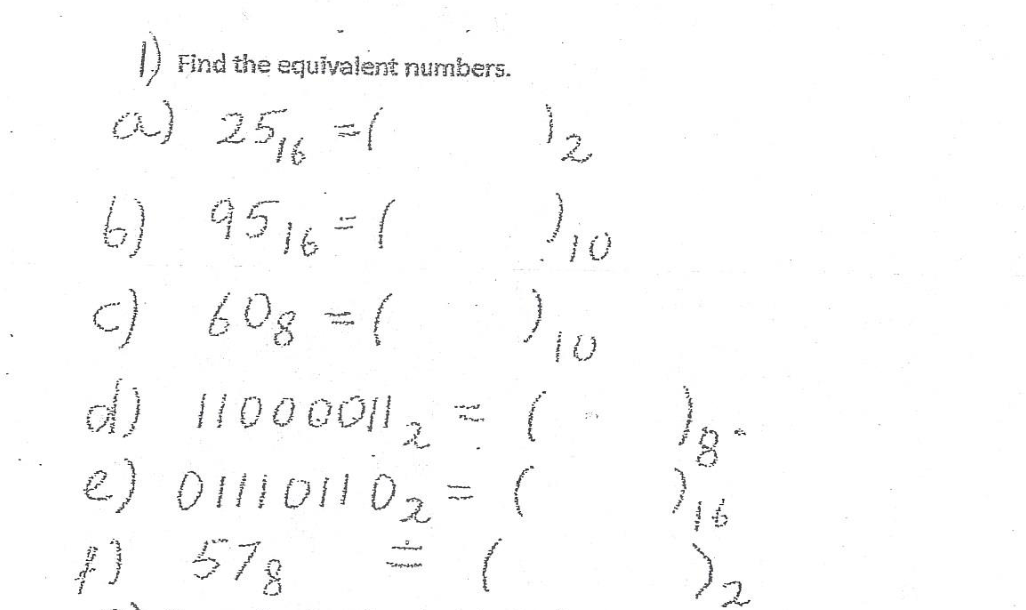 1) Find the equivalent numbers.
a) 25₁₆ = ( )₂
b) 95₁₆ = ( )₁₀
c) 60₈ = ( )₁₀
d) 11000011₂ = ( )₈.
e) 011101110₂ = ( )₁₆
f) 57₈ = ( )₂